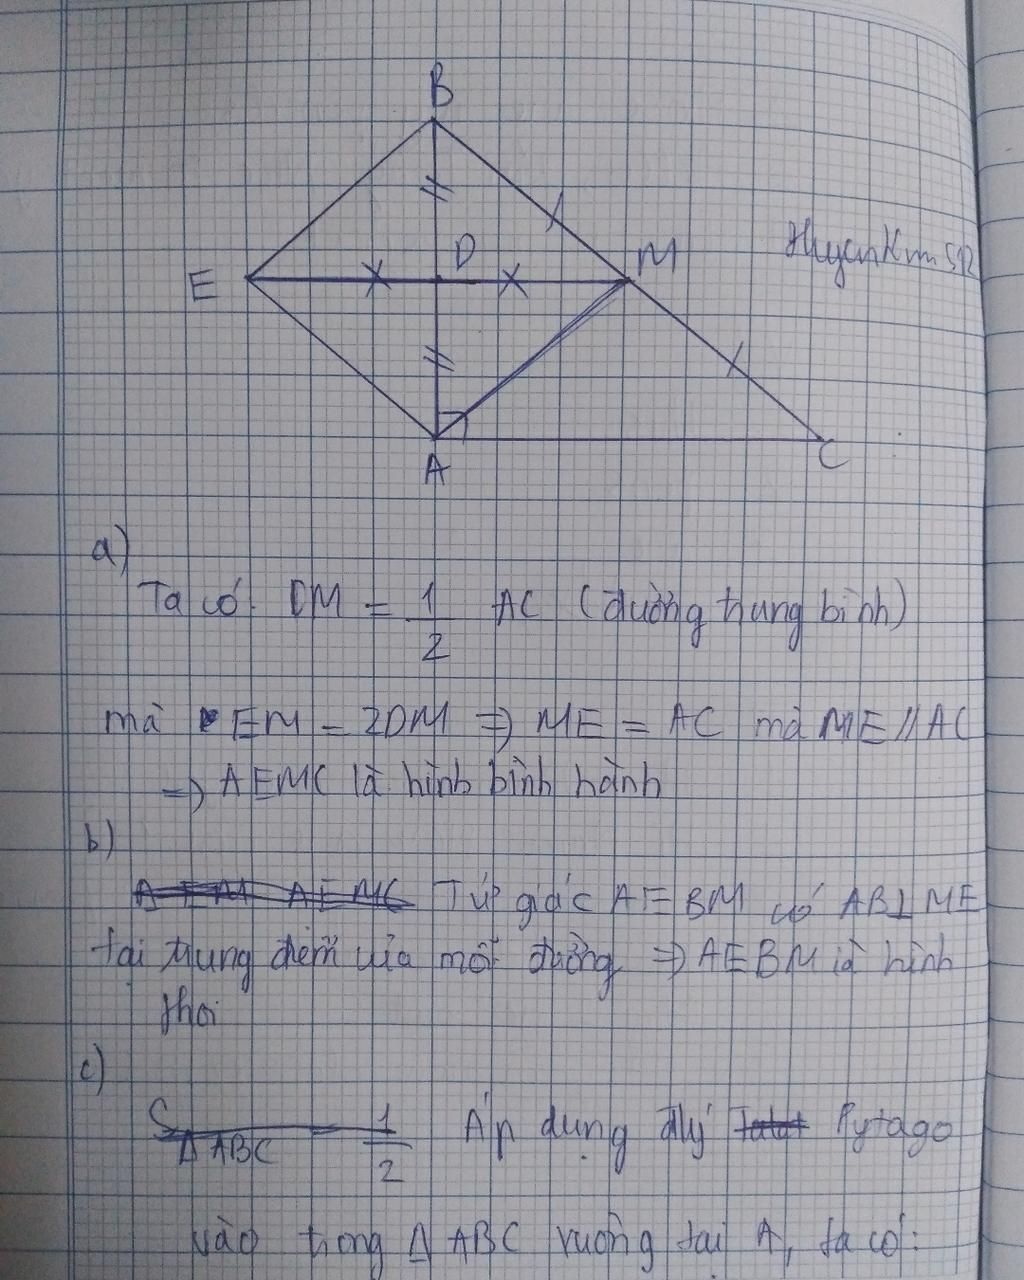 B
D
M
HuyenKm592
E
A
C
a)
Ta có DM = 1/2 AC (đường trung bình)
mà EM = 2DM => ME = AC mà ME // AC
=> AEMC là hình bình hành
b)
Tứ giác AEBM có AB⊥ME
tại trung điểm của mỗi đường => AEBM là hình
thoi
c)
S ΔABC = 1/2 Áp dụng đlý Pytago
vào trong Δ ABC vuông tại A, ta có: